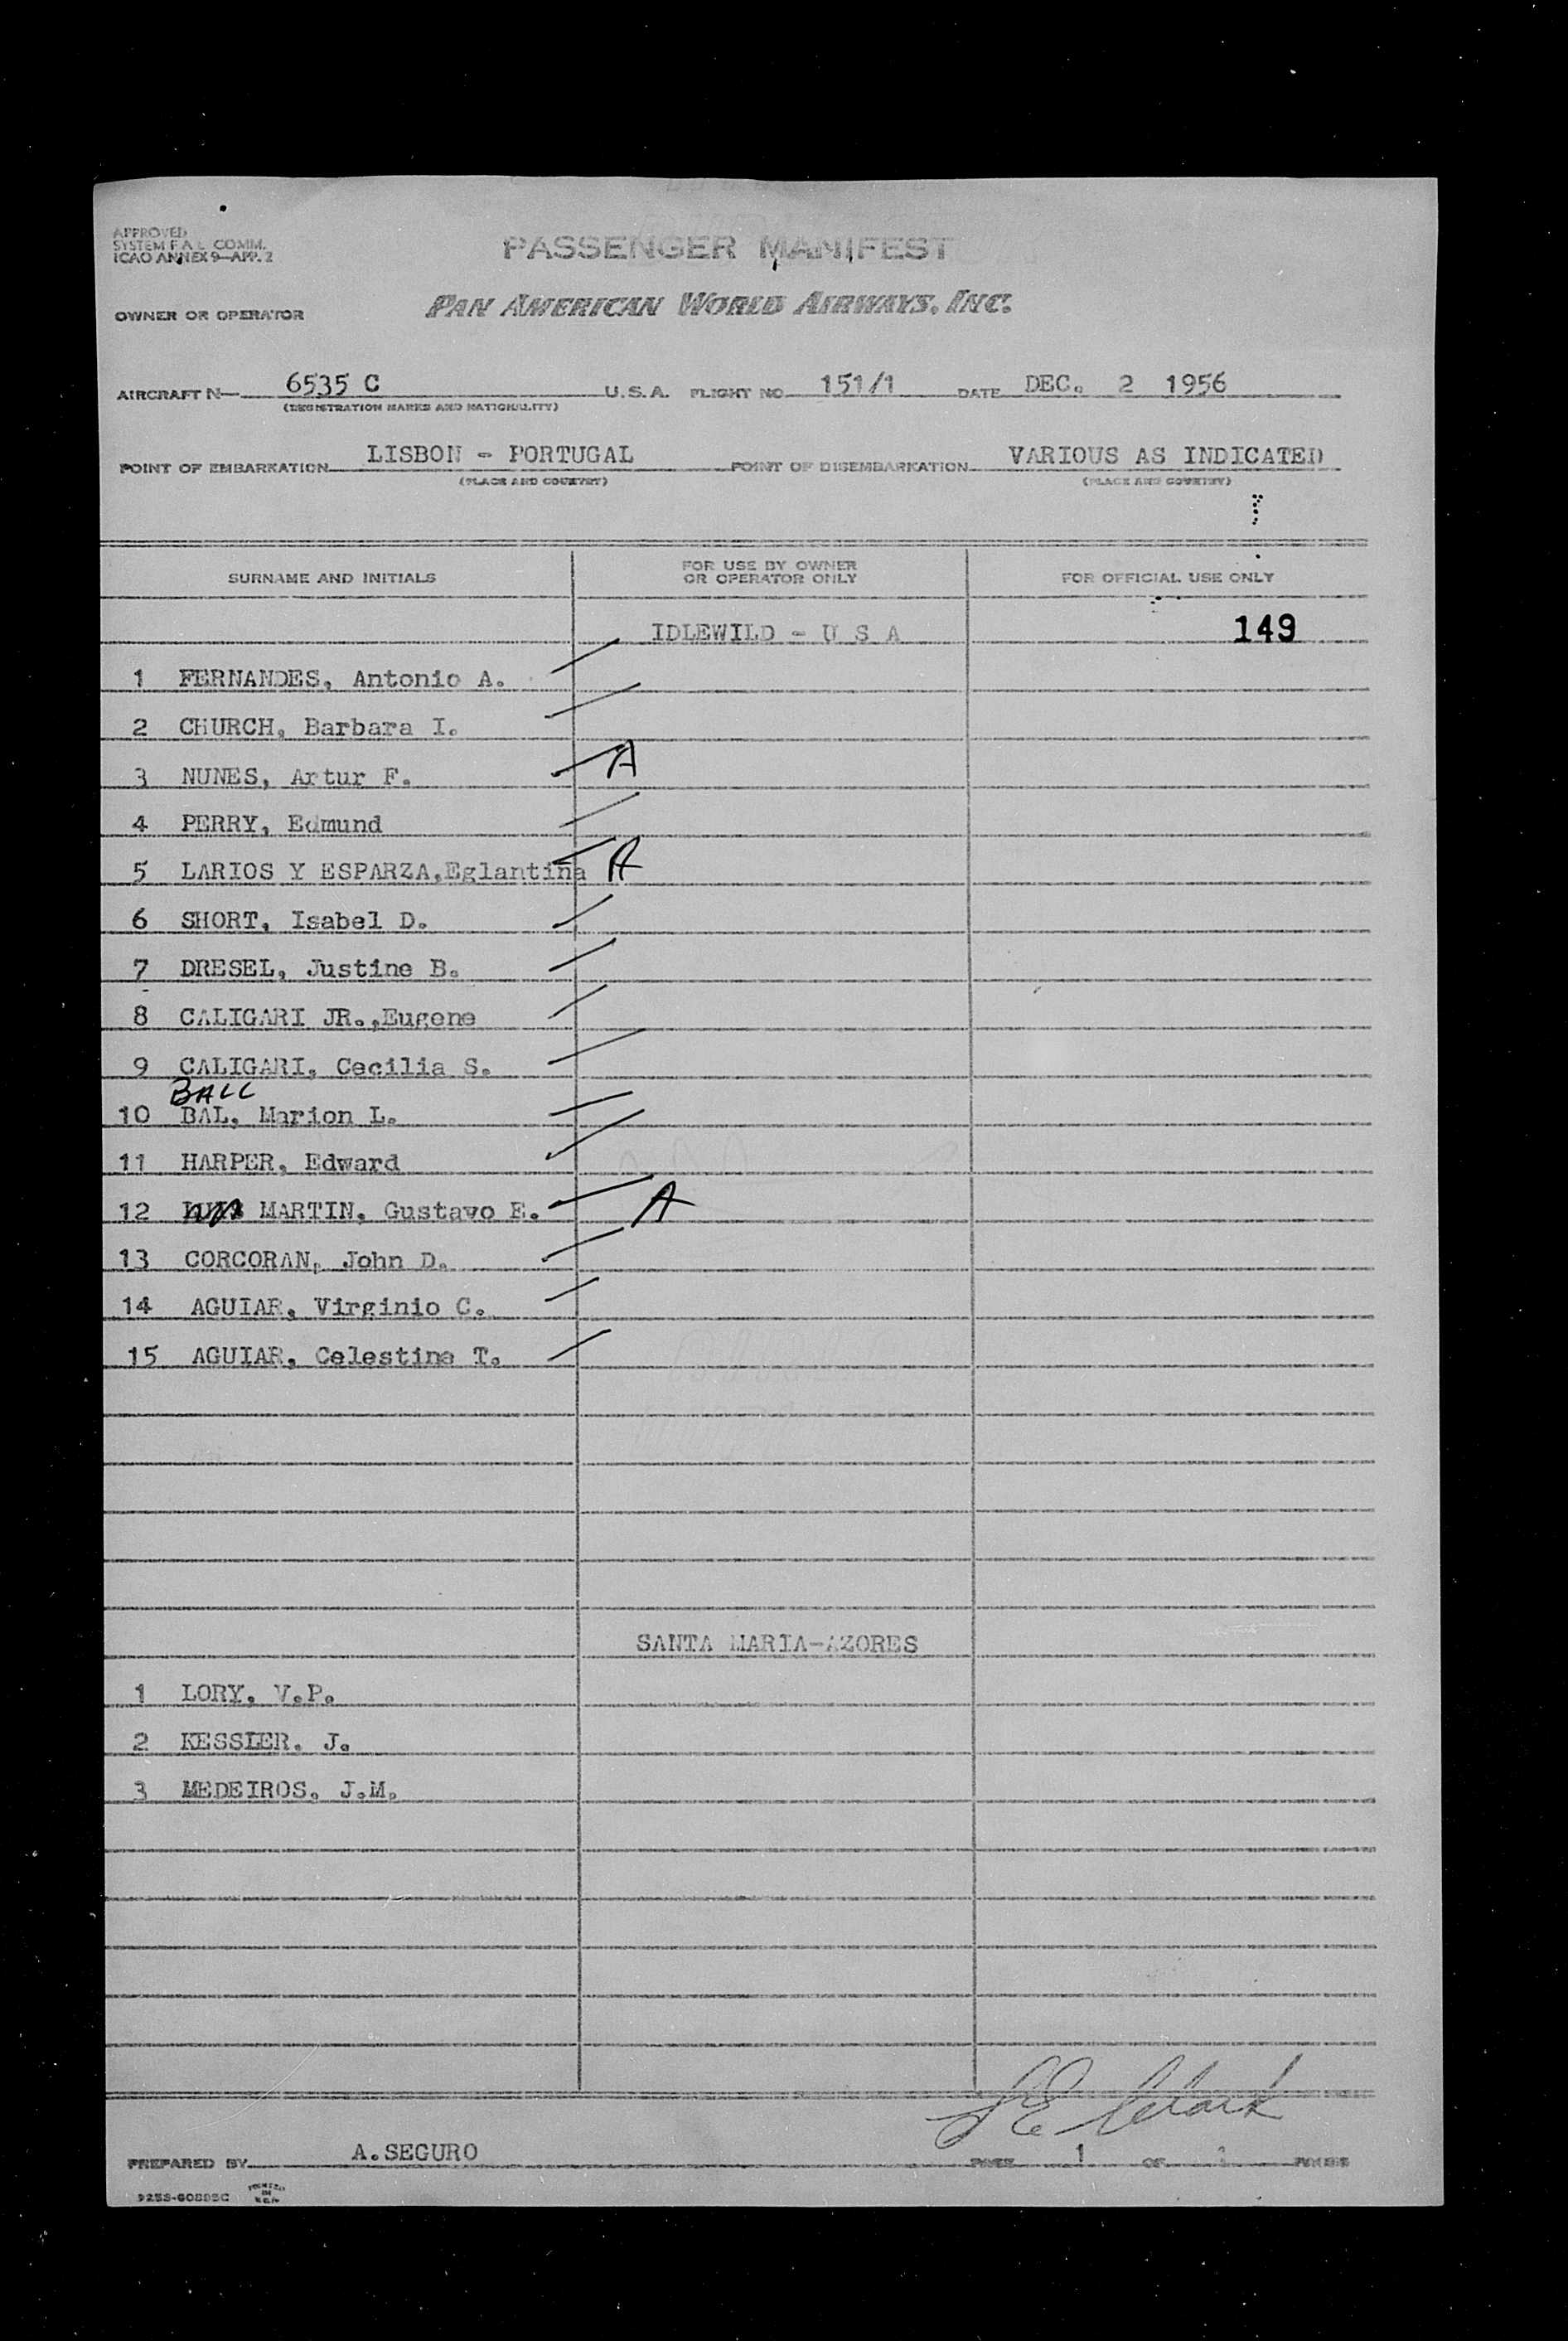 APPROVED
SYSTEM F.A.L. COMM.
ICAO ANNEX 9-APP. 2
PASSENGER MANIFEST
OWNER OR OPERATOR PAN AMERICAN WORLD AIRWAYS, INC.
AIRCRAFT N- 6535 C U.S.A. FLIGHT NO. 151/1 DATE DEC. 2 1956
(REGISTRATION MARKS AND NATIONALITY)
POINT OF EMBARKATION LISBON - PORTUGAL POINT OF DISEMBARKATION VARIOUS AS INDICATED
(PLACE AND COUNTRY) (PLACE AND COUNTRY)
SURNAME AND INITIALS FOR USE BY OWNER OR OPERATOR ONLY FOR OFFICIAL USE ONLY
IDLEWILD - U S A 149
1 FERNANDES, Antonio A.
2 CHURCH, Barbara I.
3 NUNES, Artur F. A
4 PERRY, Edmund
5 LARIOS Y ESPARZA,Eglantina A
6 SHORT, Isabel D.
7 DRESEL, Justine B.
8 CALIGARI JR.,Eugene
9 CALIGARI, Cecilia S.
BALL
10 BAL, Marion L.
11 HARPER, Edward
12 MARTIN, Gustavo E. A
13 CORCORAN, John D.
14 AGUIAR, Virginio C.
15 AGUIAR, Celestina T.
SANTA MARIA-AZORES
1 LORY, V.P.
2 KESSLER, J.
3 MEDEIROS, J.M.
PREPARED BY A.SEGURO PAGE 1 OF PAGES
PRINTED
IN
U.S.A.